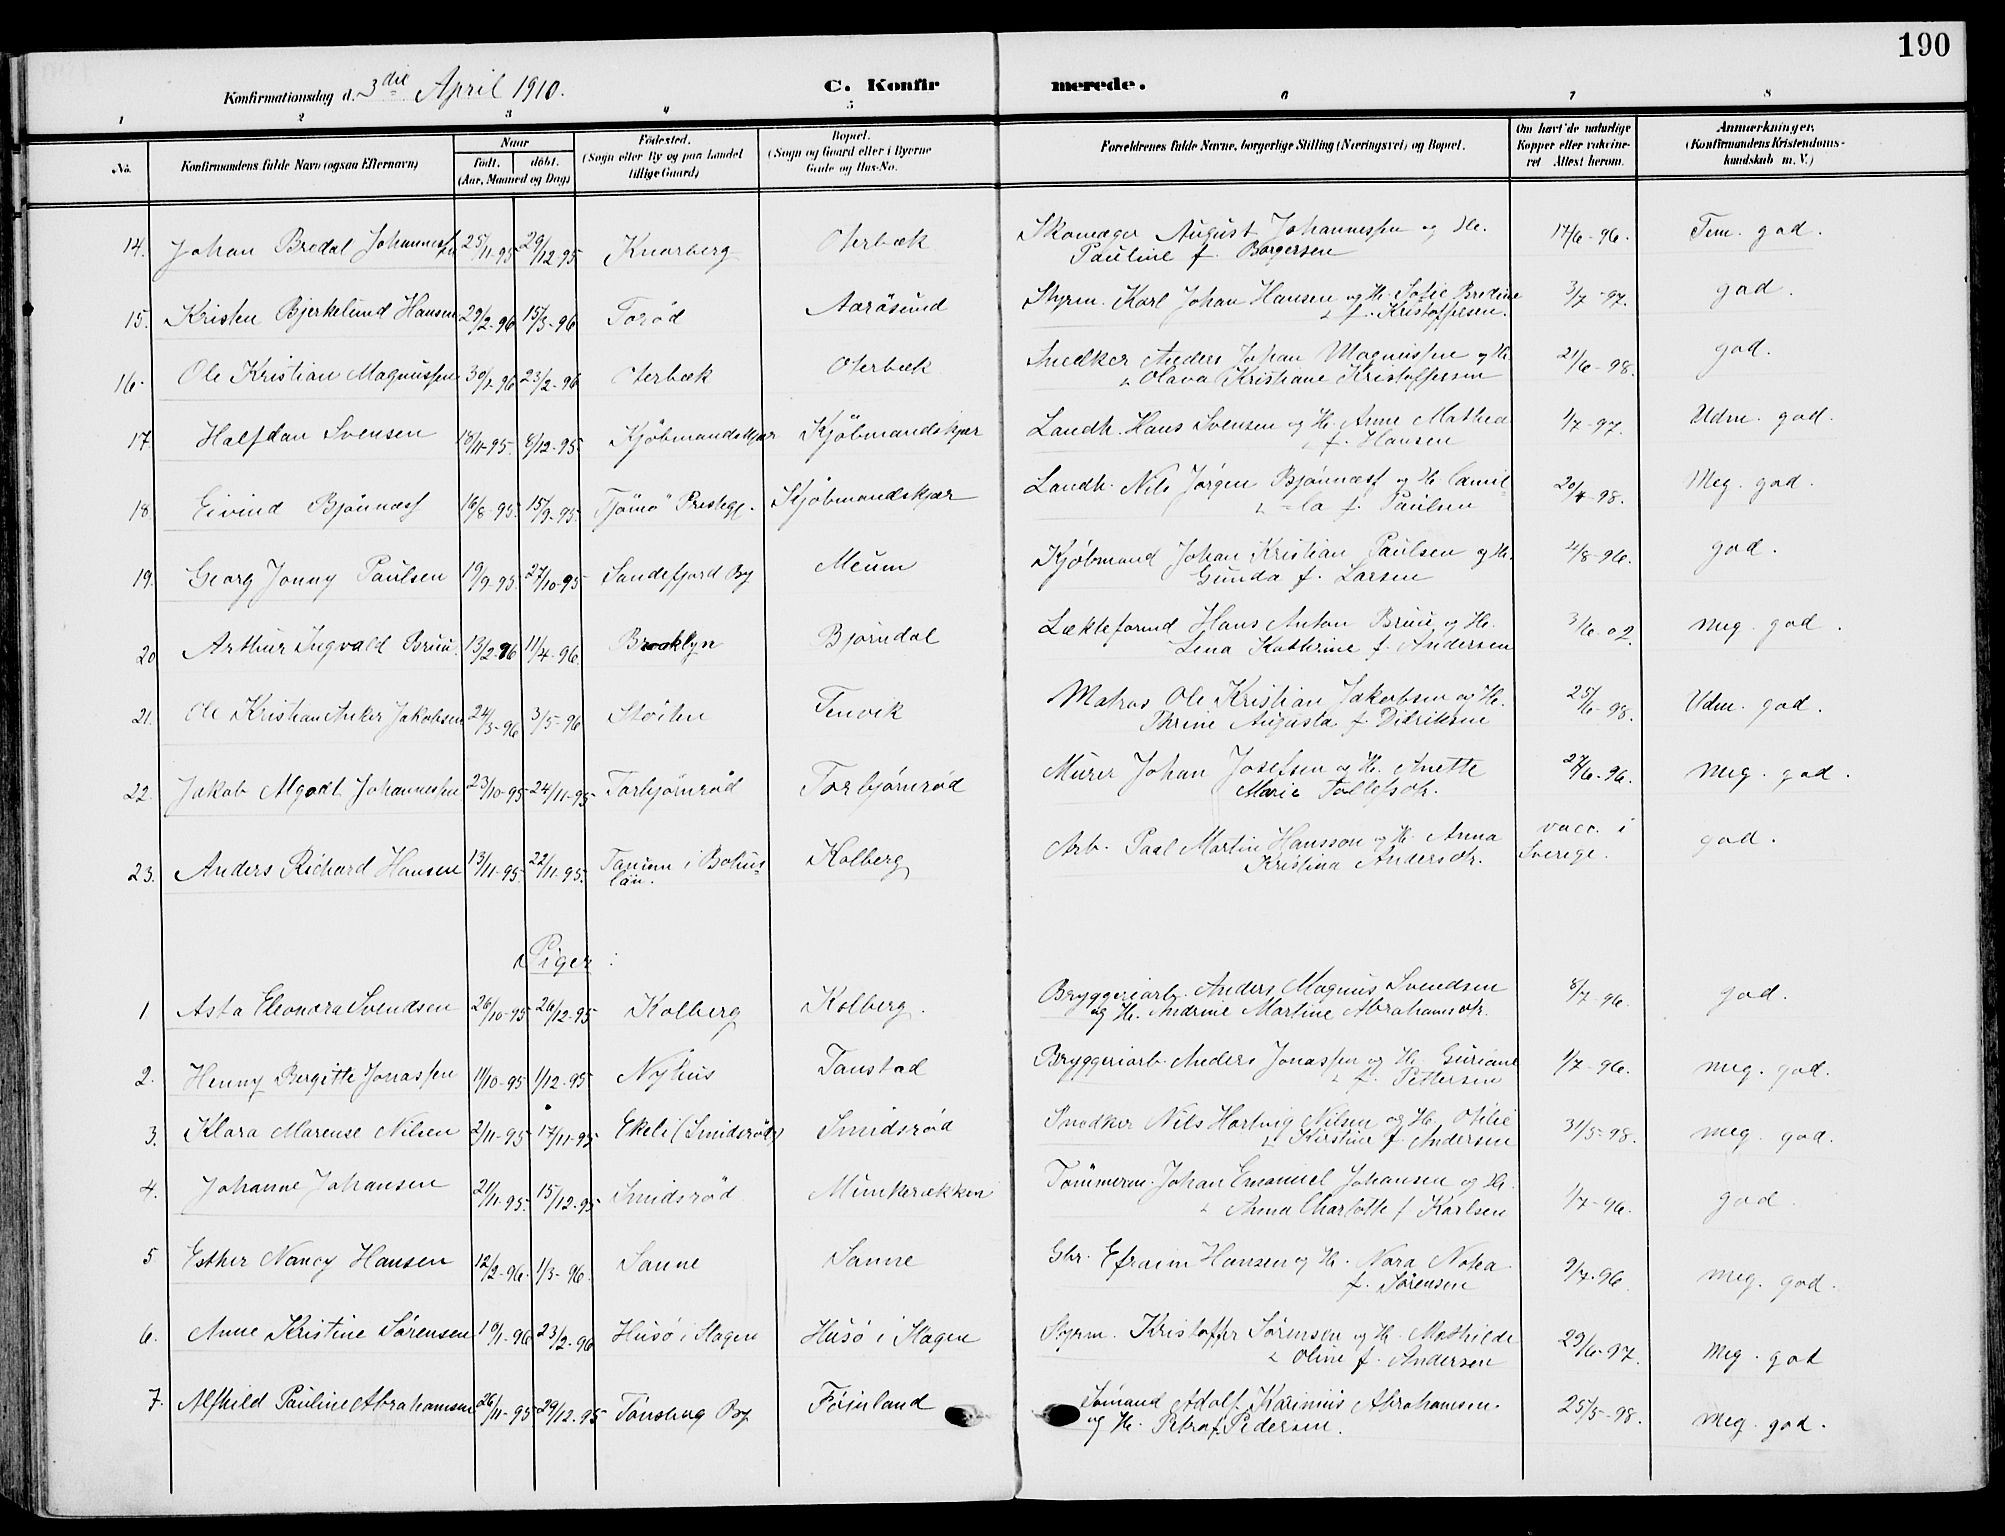 190
Konfirmationsdag d. 3die April 1910.
C. Konfirmerede.
1 2 3 4 5 6 7 8
No. Konfirmandens fulde Navn (ogsaa Efternavn) Naar født, døbt. (Aar, Maaned og Dag) Fødested. (Sogn eller By og paa Landet tillige Gaard) Bopæl. (Sogn og Gaard eller i Byerne Gade og Hus-No. Forældrenes fulde Navne, borgerlige Stilling (Næringsvei) og Bopæl. Om havt de naturlige Kopper eller vaccineret Attest herom. Anmærkninger. (Konfirmandens Kristendomskundskab m. V.)
14. Johan Bredal Johannessen 25/11-95 29/12-95 Knarberg Oterbæk Skomager August Johannessen og H. Pauline f. Borgersen 17/6-96. Tem. god.
15. Kristen Bjerkelund Hansen 29/2-96 15/3-96 Torød Aarøsund Styrm. Karl Johan Hansen og H. Sofie Bredine f. Kristoffersen. 3/7-97. god.
16. Ole Kristian Magnussen 30/1-96 23/2-96 Oterbæk Oterbæk Snedker Anders Johan Magnussen og H. Olava Kristiane Kristoffersen 21/6-98. god.
17. Halfdan Svensen 18/11-95. 8/12-95. Kjöbmandskjær Kjöbmandskjær Landh. Hans Svensen og H. Anne Mathea f. Hansen 1/7-97. Udm. god.
18 Eivind Bjönness 16/8-95. 15/9-95. Tjömö Prestegj. Kjöbmandskjær Landh. Nils Jørgen Bjønness og H. Camilla f. Paulsen 20/4-98. Meg. god.
19. Georg Jonny Paulsen 19/9-95. 27/10-95 Sandefjord By Meum Kjøbmand Johan Kristian Paulsen og H. Gunda f. Larsen 4/8-96. god.
20 Arthur Ingvald Bruu 13/2-96 11/4-96 Brooklyn Bjørndal Hans Anton Bruu og H. Lena Kathrine f. Andersen 3/6-02 meg. god.
21. Ole Kristian Anker Jakobsen 24/3-96 3/5-96 Støiten Tenvik Matros Ole Kristian Jakobsen og H. Thrine Augusta f. Didriksen 25/6-98. Udm. god.
22. Jakob Algodt Johannessen 23/10-95 24/11-95 Torbjørnrød Torbjørnrød Murer Johan Josefsen og H. Anette Marie Tollefsdtr. 27/6-96. Meg. god.
23. Anders Richard Hansen 13/11-95. 22/11-95. Tanum i Bohuslän. Kolberg Arb. Paal Martin Hansson og H. Anna Kristina Andersdtr. vacc. i Sverige. god.
Piger:
1 Asta Eleonora Svendsen 26/10-95 26/12-95 Kolberg Kolberg. Bryggeriarb. Anders Magnus Svendsen og H. Andrine Martine Abrahamsdtr. 8/7-96. god.
2. Henny Bergitte Jonassen 11/10-95 1/12-95 Nyhus Tanstad Bryggeriarb. Anders Jonassen og H. Guriane f. Pettersen 1/7-96. meg. god.
3. Klara Marense Nilsen 2/11-95 17/11-95 Ekeli (Smidsrød) Smidsrød Snedker Nils Hartvig Nilsen og H. Otilie Kirstine f. Andersen 31/5-98. meg. god.
4. Johanne Johansen 21/11-95. 15/12-95 Smidsrød Munkerækken Tømmerm. Johan Emanuel Johansen og H. Anna Charlotte f. Karlsen 1/7-96. god
5 Esther Nancy Hansen 12/2-96. 1/3-96. Sanne Sanne Gbr. Efraim Hansen og H. Nara f. Sørensen 9/7-96. meg. god.
6. Anne Kristine Sørensen 10/1-96 23/2-96 Husö i Slagen Husö i Slagen Styrm. Kristoffer Sørensen og H. Mathilde Oline f. Andersen 29/6-97. meg. god
7. Alfhild Pauline Abrahamsen 26/11-95 29/12-95 Tönsberg By Føinland Sömand Adolf Karinius Abrahamsen og H. Petra f. Pedersen. 25/5-98. meg. god.